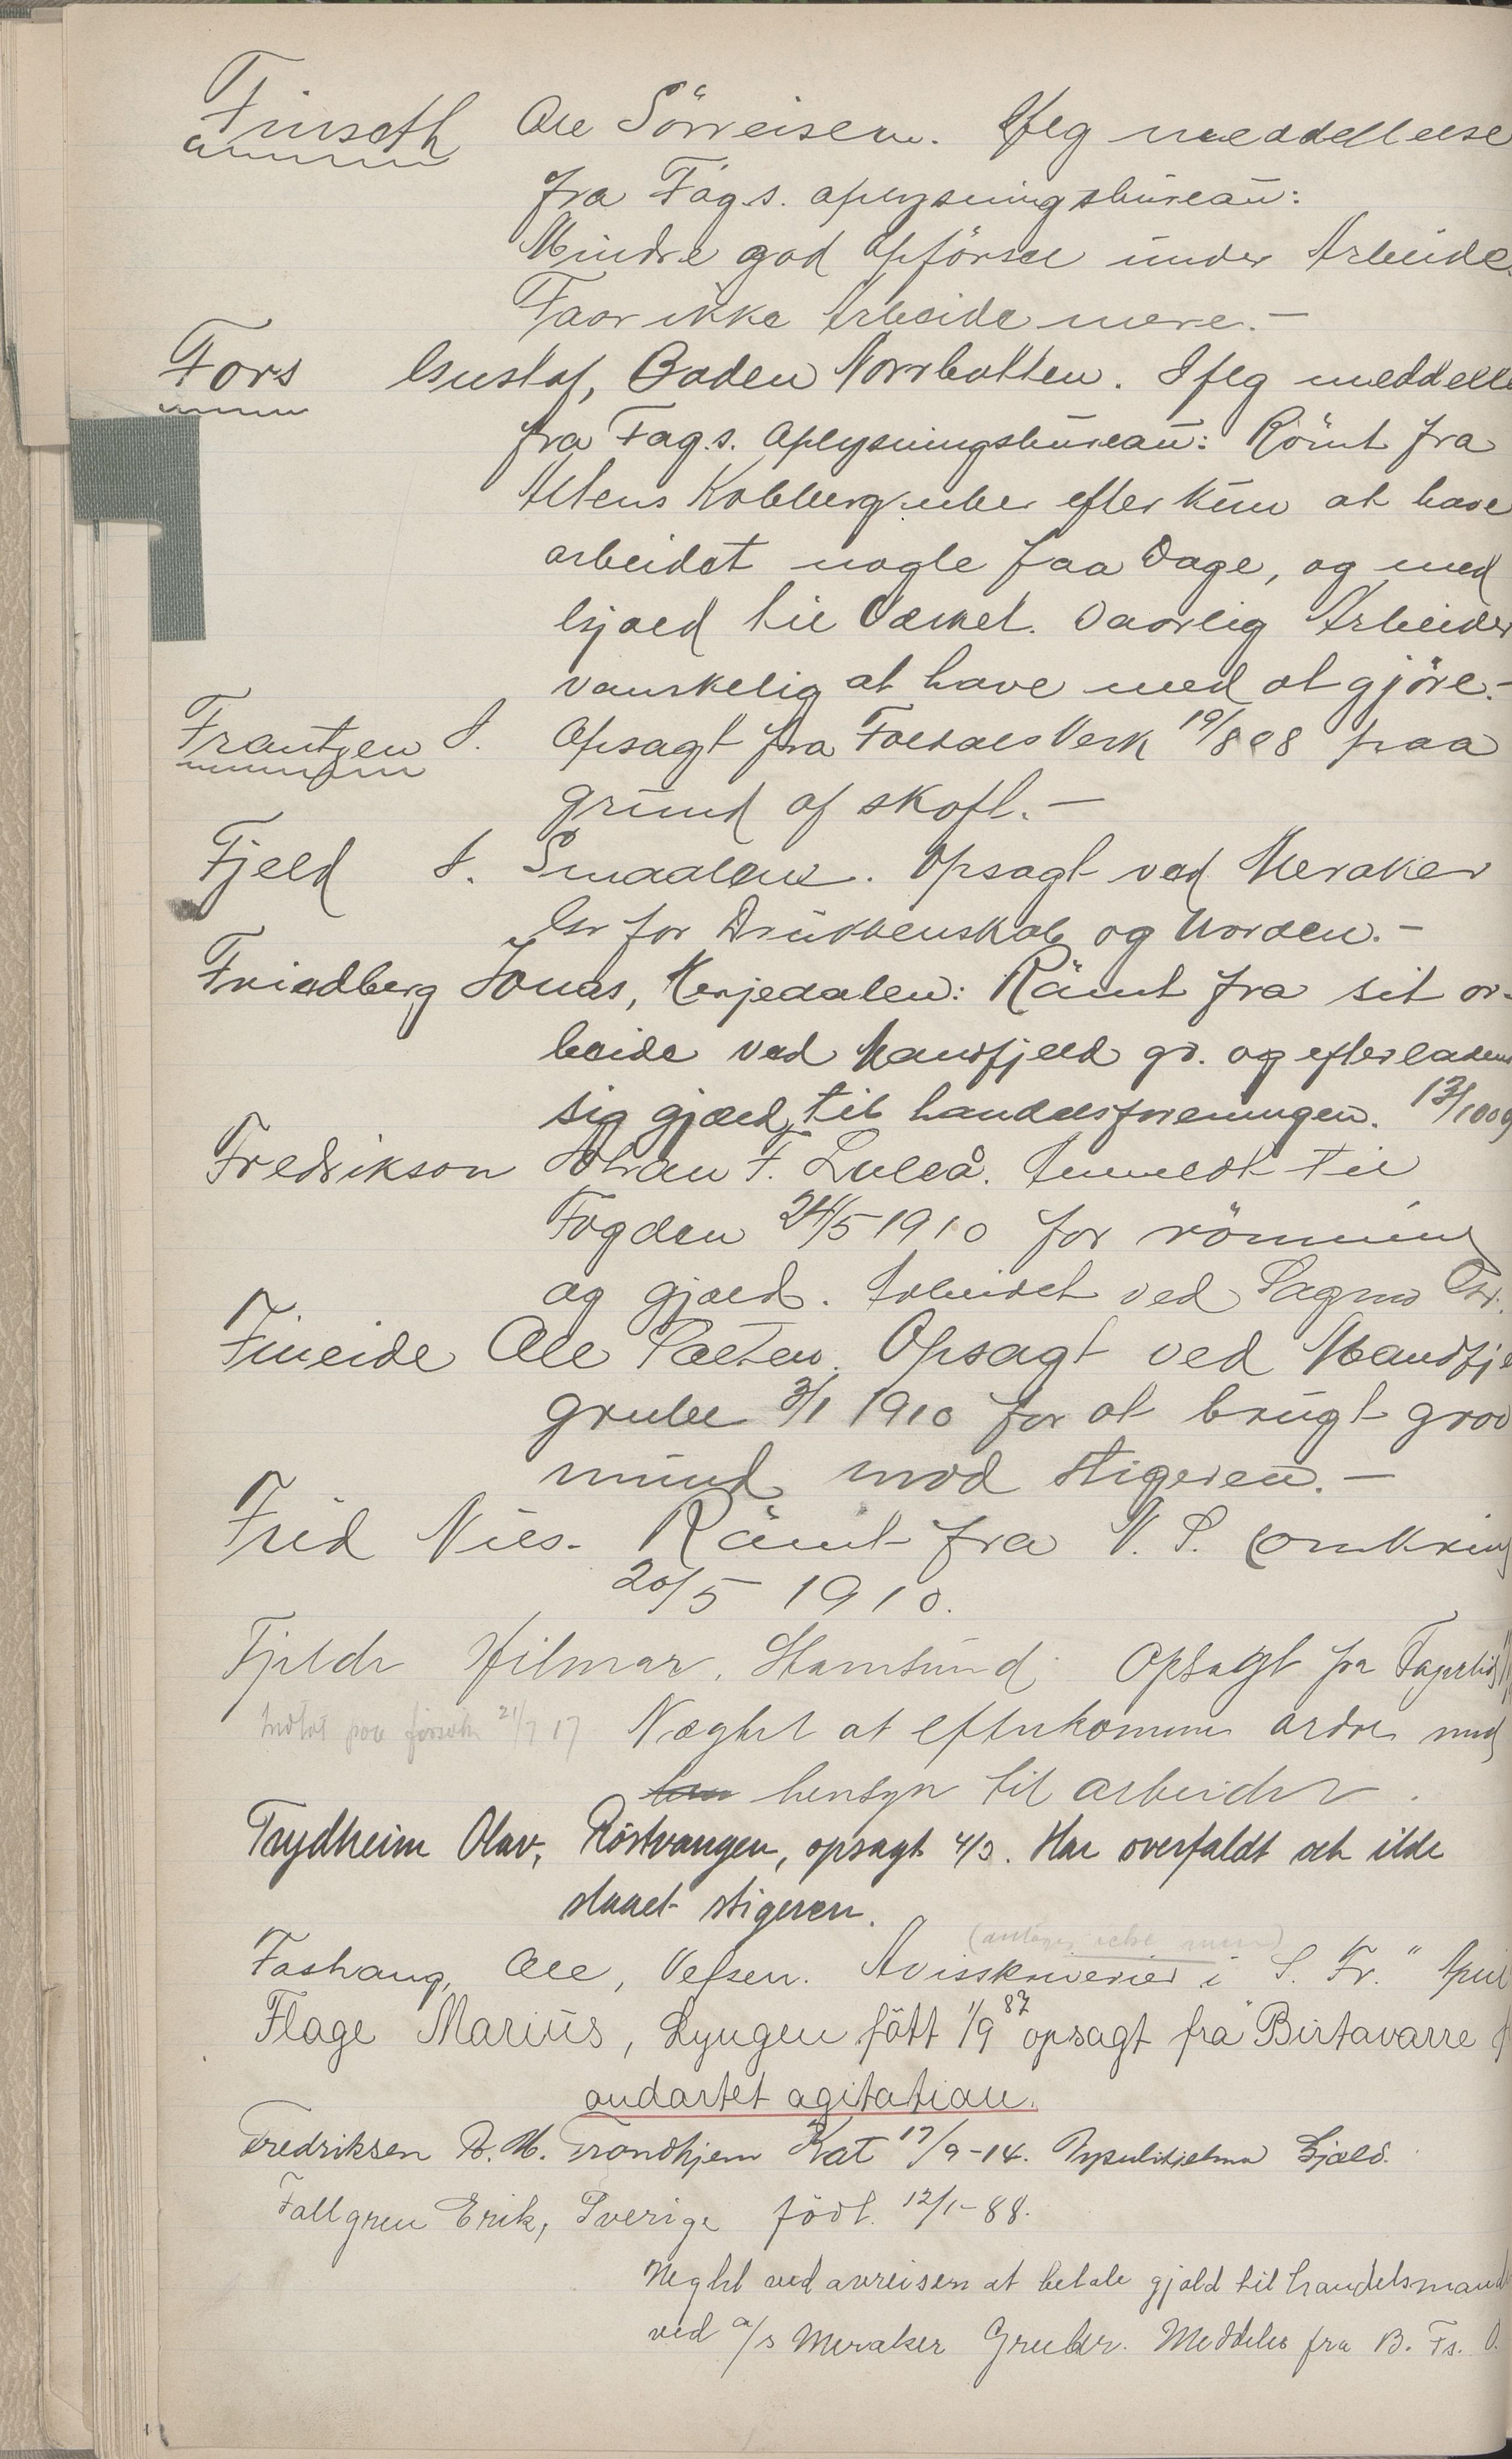 Finseth Ole Sörreisen. Ifeg meddelelse
fra Fag.s. oplysningsbureau:
Mindre god Opförsel under Arbeide.
Faar ikke Arbeide mere.—
Fors Gustaf, Boden Norrbotten. Ifeg meddelelse
fra Fag.s. Oplysningsbureau: Römt fra
Altens Kobbergruber efter kun at have
arbeidet nogle faa Dage, og med
gjæld til Værket. Daarlig Arbeider
vanskelig at have med at gjöre.—
Frantzen J. Opsagt fra Foldals Verk 19/8 08 paa
grund af skoft.—
Fjeld J. Smaalene. Opsagt ved Meraker
Gr for Drukkenskab og Uorden.—
Friedberg Jonas, Herjedalen: Römt fra sit ar-
beide ved Mandfjeld gr. og efterladend
sig gjæld til handelsforeningen. 13/10 09
Fredrikson Johan F. Luleå. Anmeldt til
Fogden 24/5 1910 for römning
og gjæld. Arbeidet ved Sagmo Gr.
Fineide Ole Salten. Opsagt ved Mandfje
grube 3/1 1910 for at brugt grov
mund mod stigeren.—
Frid Nils. Römt fra N. S. (omkring
20/5 1910.
Fjeldr Hilmar, Stamsund. Opsagt fra Fagerli
21/7 17 Nægtet at efterkomme ordre med
hensyn til arbeider.
Frydheim Olav, Röstvangen, opsagt 4/3. Har overfaldt och ilde
slaaet stigeren.
(antages icke mere)
Foshaug, Ole, Vefsen. Avisskriverier i S. Fr." April
Flage Marius, Lyngen fött 1/9 87 opsagt från Birtavarre f
ondartet agitation.
Fredriksen D. M. Trondhjem Kat 17/9-14. Gjæld.
Fallgren Erik, Sverige födt. 12/1-88.
Neglet ved avreisen at betale gjæld til handelsmand
ved a/s Meraker Gruber. Meddeles fra B. Fs. O.